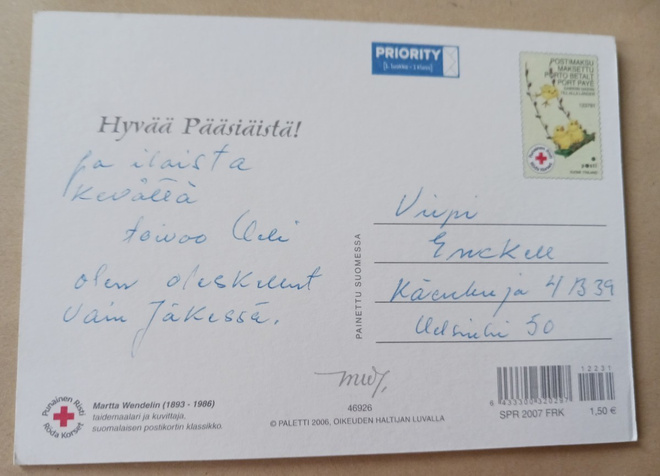 PRIORITY
POSTIMAKSU
MAKSETTU
PORTO BETALT
PORT PAYÉ
Hyvää Pääsiäistä!
ja iloista
kevättä
toivoo Veli
olen oleskellut
vain Jäkessä.
Virpi
Enckell
4 B 39
Helsinki 50
PAINETTU SUOMESSA
Punainen Risti
Röda Korset
Martta Wendelin (1893 - 1986)
taidemaalari ja kuvittaja,
suomalaisen postikortin klassikko.
MW.
46926
© PALETTI 2006, OIKEUDEN HALTIJAN LUVALLA
12231
SPR 2007 FRK
1,50 €